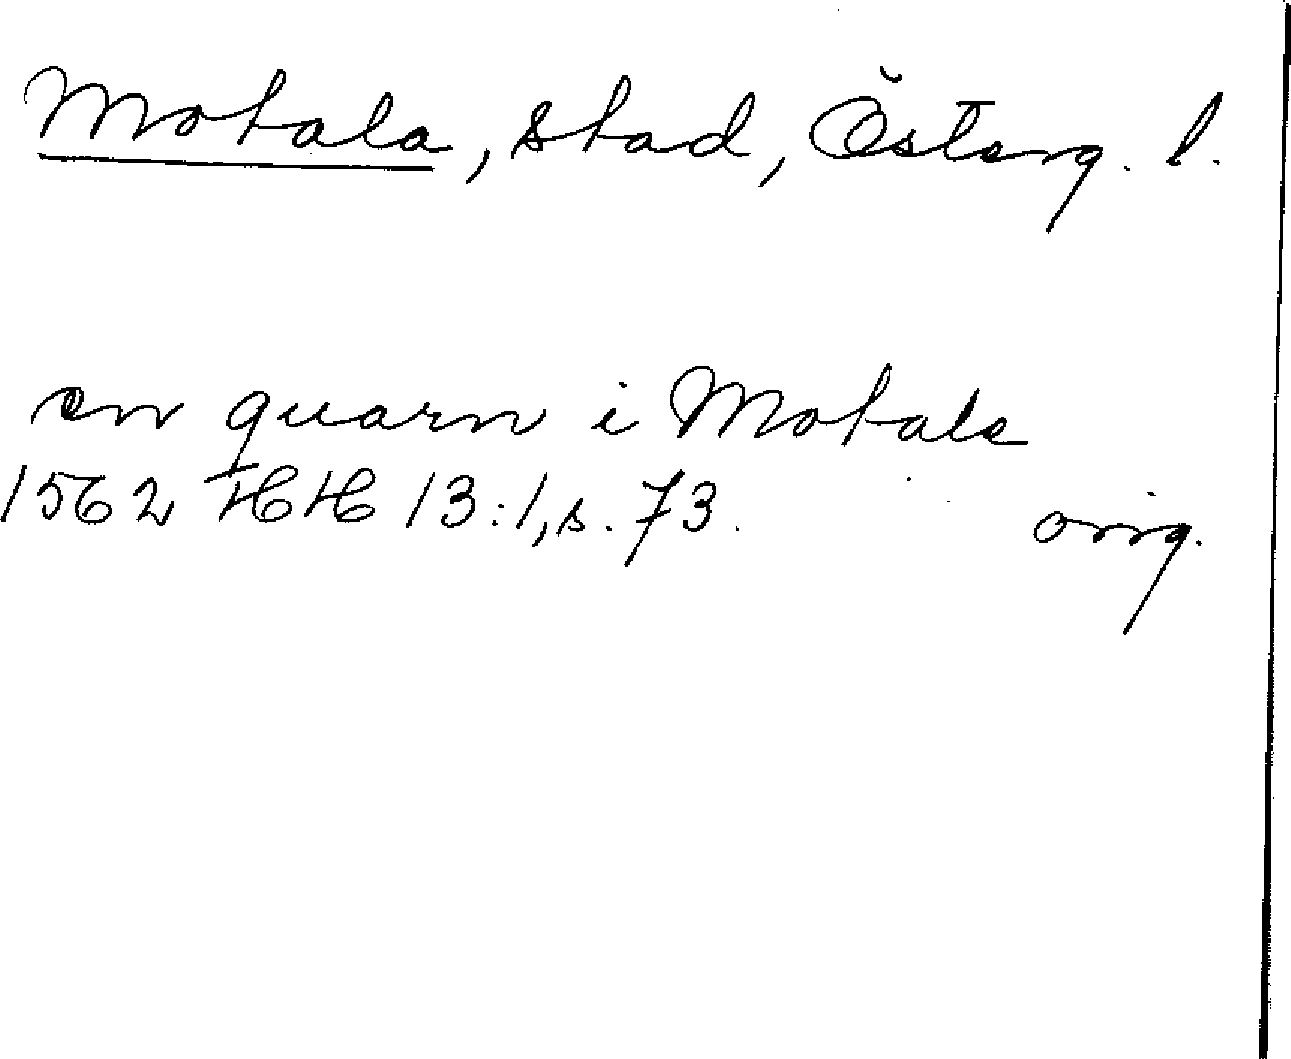 Motala, stad, Österg. l.
en quarn i Motale
1562 HH 13:1, s. 73. orig.